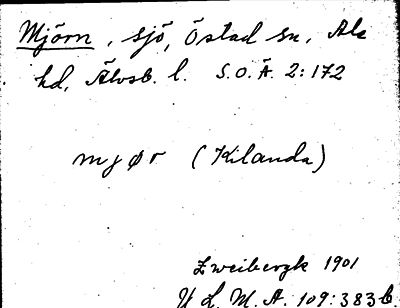 Mjörn, sjö, Östad sn, Ale
hd, Älvsb. l. S.O.Ä. 2:172
mjør (Kilanda)
Zweibergk 1901
U L. M. A. 109:383 b.